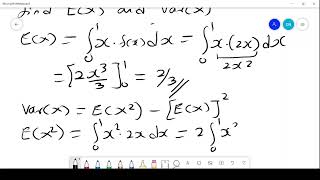 find E(x) and Var(x)
E(x) = ∫₀¹ x · f(x) dx = ∫₀¹ x · (2x) dx
2x²
= [2x³/3]₀¹ = 2/3
Var(x) = E(x²) − [E(x)]²
E(x²) = ∫₀¹ x² · 2x dx = 2∫₀¹ x³